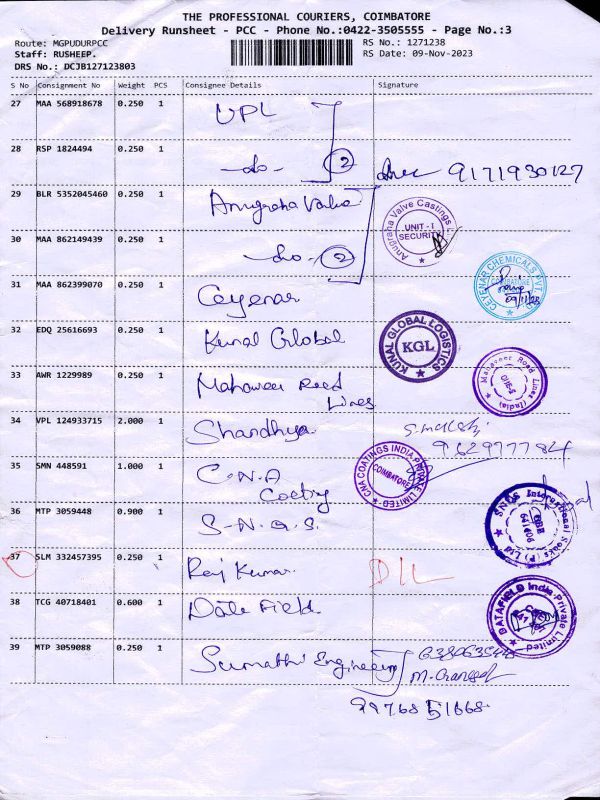 THE PROFESSIONAL COURIERS, COIMBATORE
Delivery Runsheet - PCC - Phone No.:0422-3505555 - Page No.:3
Route: MGPUDURPCC RS No.: 1271238
Staff: RUSHEEP. RS Date: 09-Nov-2023
DRS No.: DCJB127123803
S No Consignment No Weight PCS Consignee Details Signature
27 MAA 568918678 0.250 1 UPL
28 RSP 1824494 0.250 1 -do- 2 9171930127
29 BLR 5352045460 0.250 1 Anugraha Valve
Anugraha Valve Castings L
UNIT - I
SECURITY
30 MAA 862149439 0.250 1 -do- 2
31 MAA 862399070 0.250 1 Ceyenar
CEYENAR CHEMICALS PVT.
COIMBATORE
09/11/23
32 EDQ 25616693 0.250 1 Kunal Global
KUNAL GLOBAL LOGISTICS
KGL
33 AWR 1229989 0.250 1 Mahaveer Road
Lines
Mahaveer Road Lines (India)
34 VPL 124933715 2.000 1 Shandhya
9629777784
35 SMN 448591 1.000 1 C.N.A
Coating
CNA COATINGS INDIA PRIVATE LIMITED
COIMBATORE
36 MTP 3059448 0.900 1 S-N.Q.S.
SNQS International Socks (P) Ltd
641 406
37 SLM 332457395 0.250 1 Raj Kumar D/L
38 TCG 40718401 0.600 1 Date Field
DATAFIELD India Private Limited
39 MTP 3059088 0.250 1 Sumathi Engineering
99768 51668